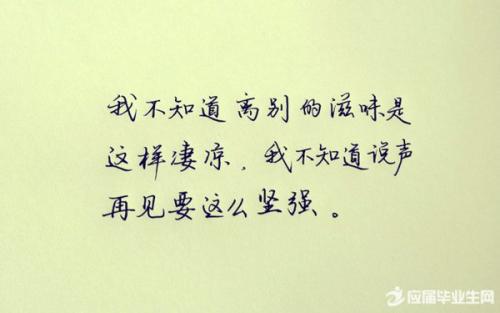 我不知道离别的滋味是
这样凄凉,我不知道说声
再见要这么坚强。
应届毕业生网